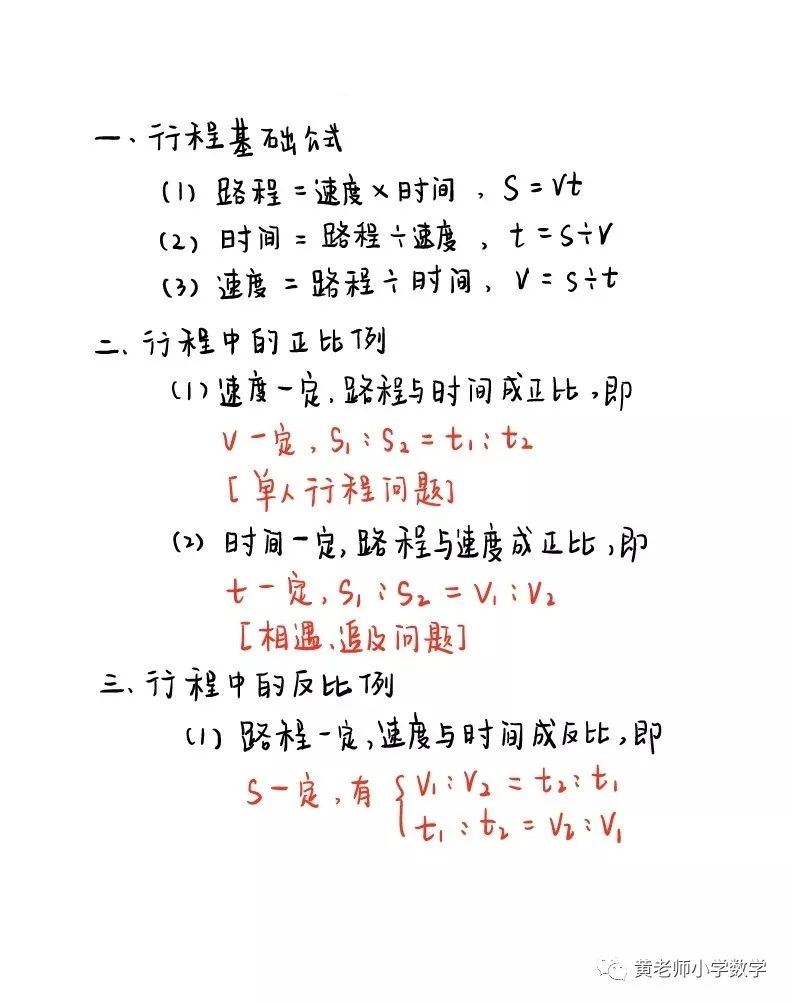 一、行程基础公式
(1) 路程=速度×时间，S=Vt
(2) 时间=路程÷速度，t=S÷V
(3) 速度=路程÷时间，V=S÷t
二、行程中的正比例
(1) 速度一定，路程与时间成正比，即
V一定，S₁:S₂=t₁:t₂
[单人行程问题]
(2) 时间一定，路程与速度成正比，即
t一定，S₁:S₂=V₁:V₂
[相遇、追及问题]
三、行程中的反比例
(1) 路程一定，速度与时间成反比，即
S一定，有{V₁:V₂=t₂:t₁
t₁:t₂=V₂:V₁
黄老师小学数学